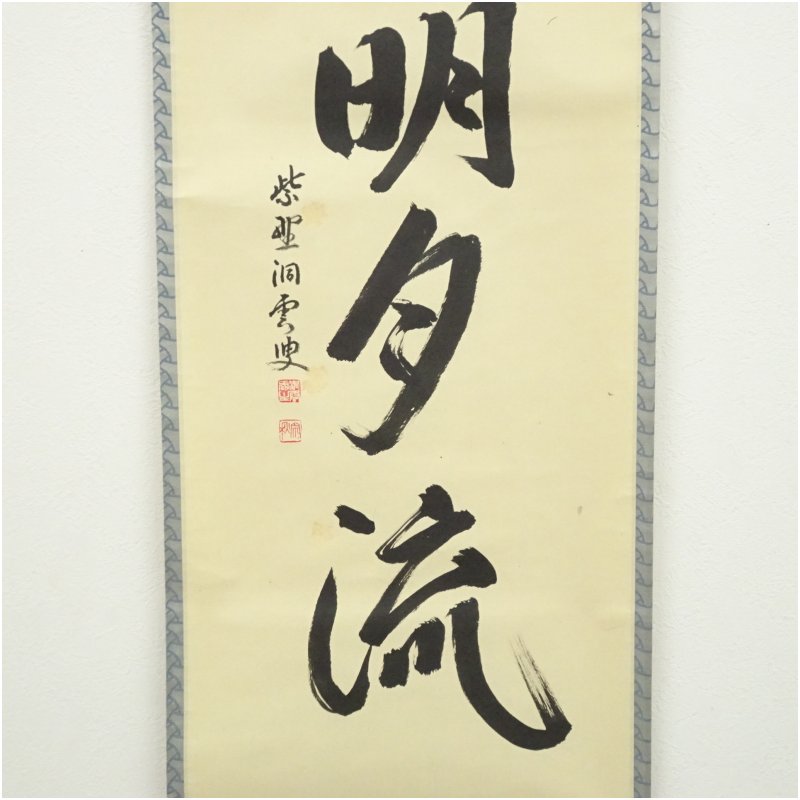 明月流
紫野洞雲叟